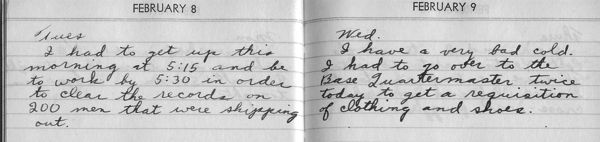 FEBRUARY 8
Tues
I had to get up this
morning at 5:15 and be
to work by 5:30 in order
to clear the records on
200 men that were shipping
out.
FEBRUARY 9
Wed.
I have a very bad cold.
I had to go over to the
Base Quartermaster twice
today to get a requisition
of clothing and shoes.